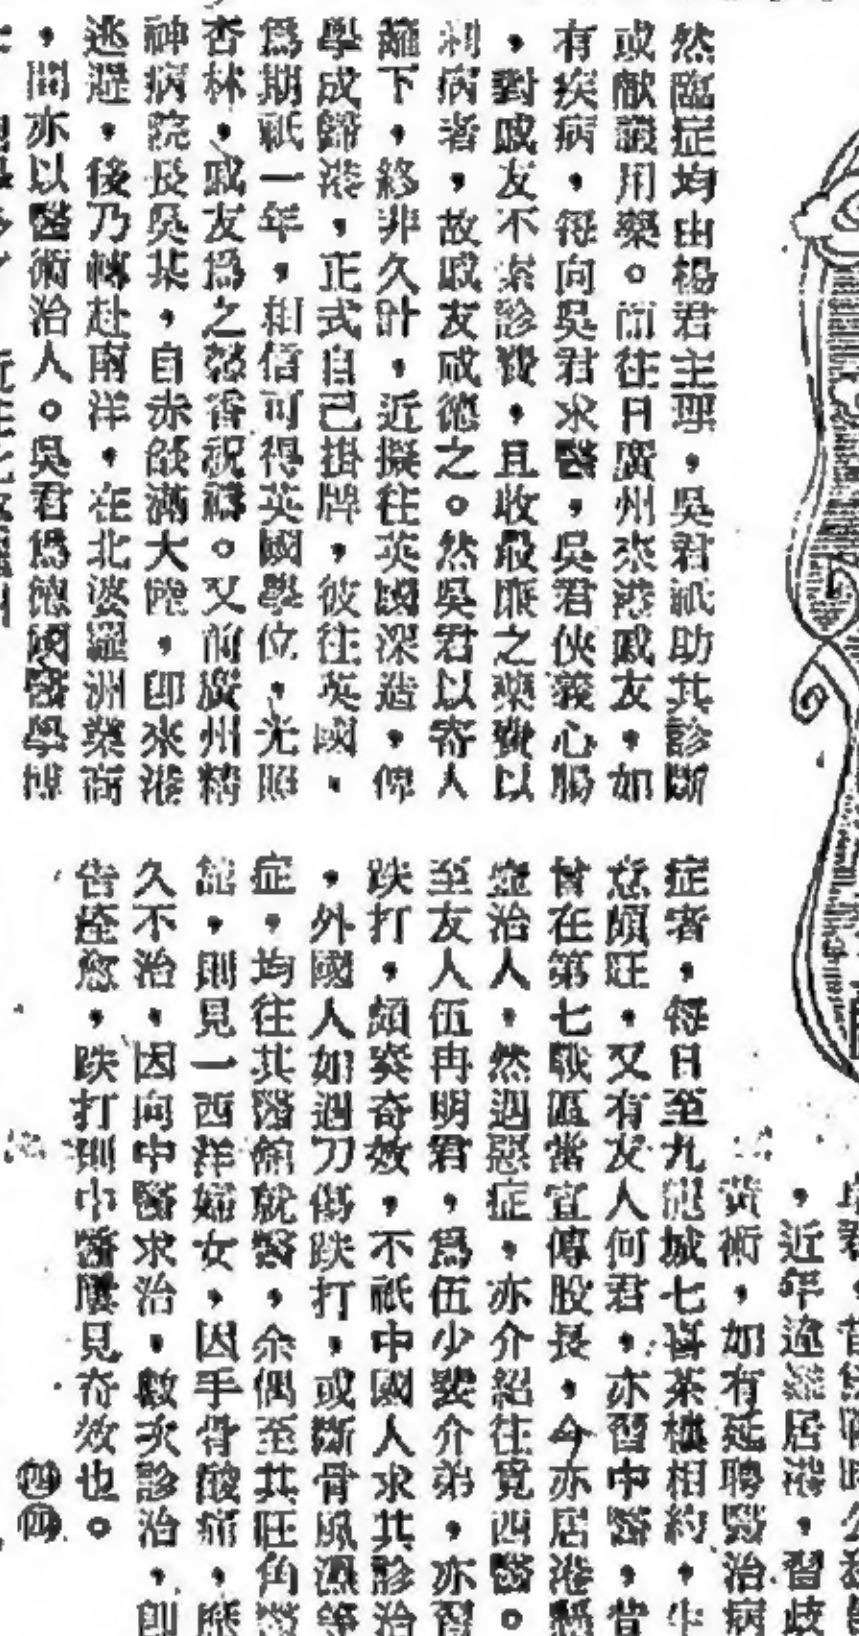 然臨症均由楊君主理，吳君祇助其診斷
或献議用藥。而往日廣州來港戚友，如
有疾病，每向吳君求醫，吳君俠義心腸
，對戚友不索診費，且收最廉之藥費以
利病者，故戚友咸德之。然吳君以寄人
籬下，終非久計，近擬往英國深造，俾
學成歸港，正式自己掛牌，彼往英國，
為期祇一年，相信可得英國學位，光照
杏林，戚友為之馨香祝禱。又前廣州精
神病院長吳某，自赤燄滿大陸，即來港
逃避，後乃轉赴南洋，在北婆羅洲業商
，間亦以醫術治人。吳君為德國醫學博
，近年遼居港，習歧
黃術，如有延聘醫治病
症者，每日至九龍城七喜茶樓相約，生
意頗旺，又有友人何君，亦習中醫，當
曾在第七戰區當宣傳股長，今亦居港懸
壺治人，然遇惡症，亦介紹往覓西醫。
至友人伍冉明君，為伍少婁介弟，亦習
跌打，頗奏奇效，不祇中國人求其診治
，外國人如遇刀傷跌打，或斷骨風濕等
症，均往其醫館就醫，余偶至其旺角醫
館，則見一西洋婦女，因手骨酸痛，
久不治，因向中醫求治，數次診治，即
告痊愈，跌打則中醫屢見奇效也。 四四